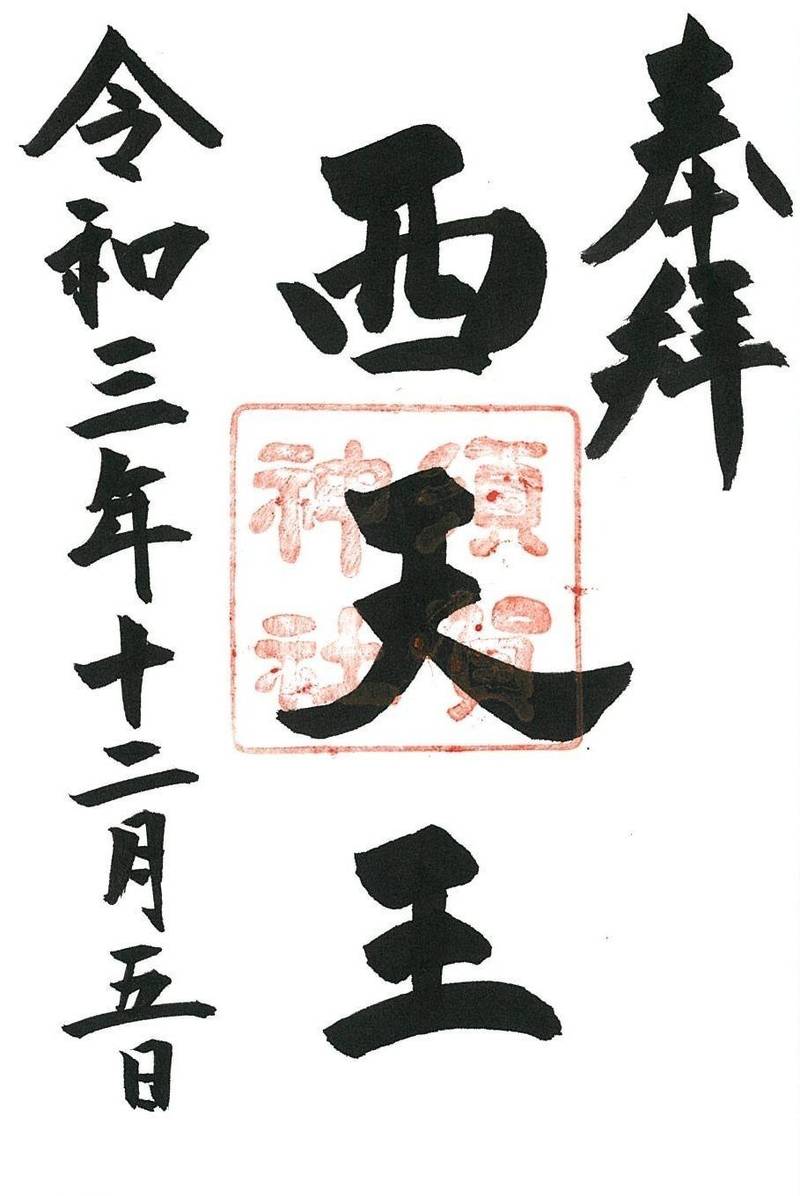 奉拝
西天王
須賀
神社
令和三年十二月五日